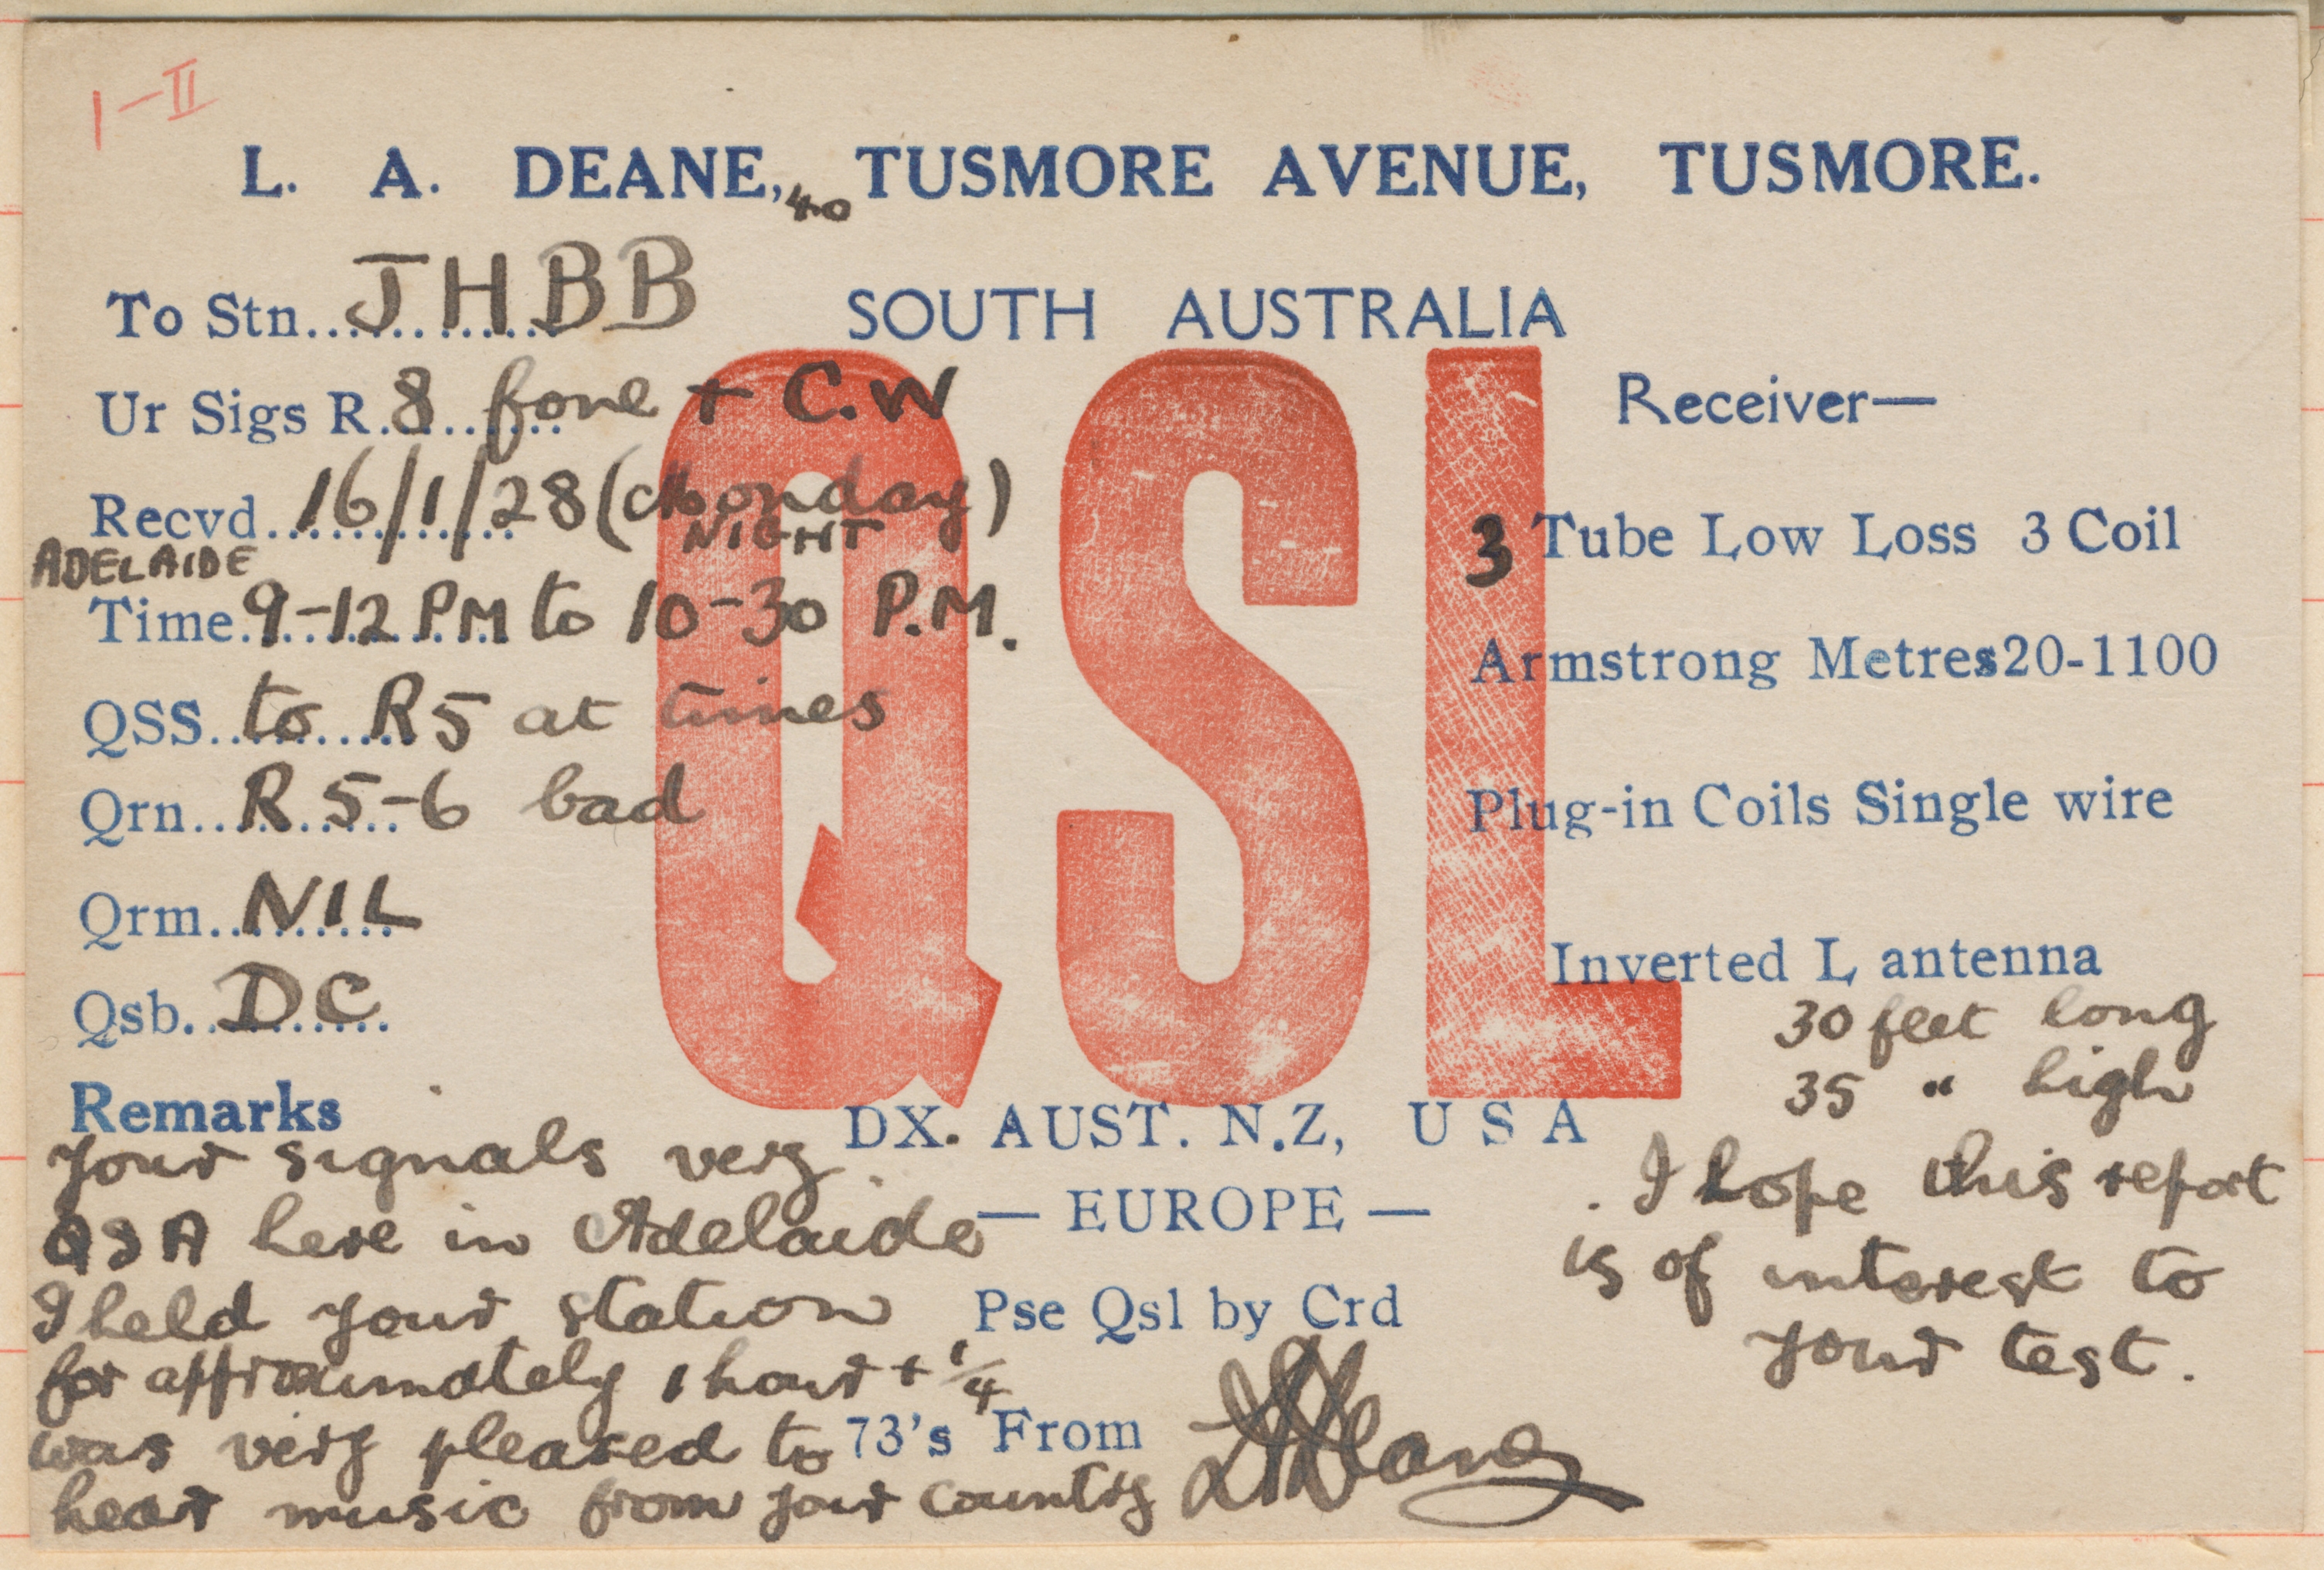 1-II
L. A. DEANE, 40 TUSMORE AVENUE, TUSMORE.
To Stn. JHBB
SOUTH AUSTRALIA
Ur Sigs R. 8 fone + C.W
Recvd. 16/1/28 (Monday)
NIGHT
ADELAIDE
Time. 9-12 PM to 10-30 P.M.
QSS. to R5 at times
Qrn. R 5-6 bad
Qrm. NIL
Qsb. DC
QSL
Receiver—
3 Tube Low Loss 3 Coil
Armstrong Metres 20-1100
Plug-in Coils Single wire
Inverted L antenna
30 feet long
35 " high
Remarks
Your signals very
QSA here in Adelaide
I held your station
for approximately 1 hour + 1/4
was very pleased to
hear music from your country
DX. AUST. N.Z, U S A
— EUROPE —
Pse Qsl by Crd
73's From LADeane
. I hope this report
is of interest to
your test.